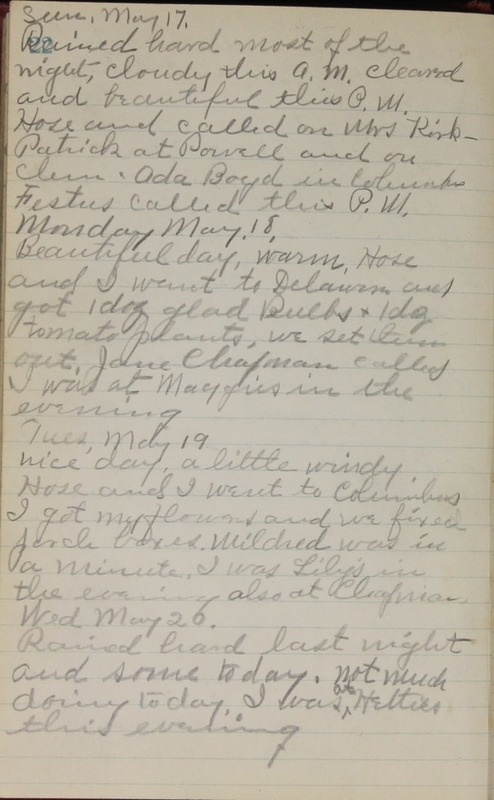 Sun, May 17.
22
Rained hard most of the
night, cloudy this A. M. cleared
and beautiful this P. M.
Hose and called on Mrs Kirk-
Patrick at Powell and on
Clem & Ada Boyd in Columbus
Festus called this P. M.
Monday May, 18,
Beautiful day, warm, Hose
and I went to Delaware and
got 1 doz glad Bulbs & 1 doz
tomato plants, we set them
out. Jane Chapman called
I was at Maggies in the
evening
Tues, May 19
nice day, a little windy
Hose and I went to Columbus
I got my flowers and we fixed
porch boxes. Mildred was in
a minute. I was Lily's in
the evening also at Chapman
Wed May 20.
Rained hard last night
and some today. not much
doing today, I was at Hetties
this evening